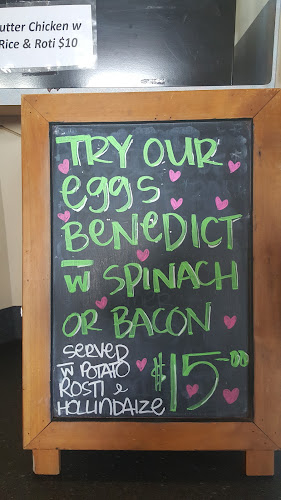 utter Chicken w
Rice & Roti $10
TRY OUR
eggs
BeNeDICT
w SPINACH
OR BACON
SERVED
W POTATO
ROSTI &
HOLLINDAIZE
$15.00